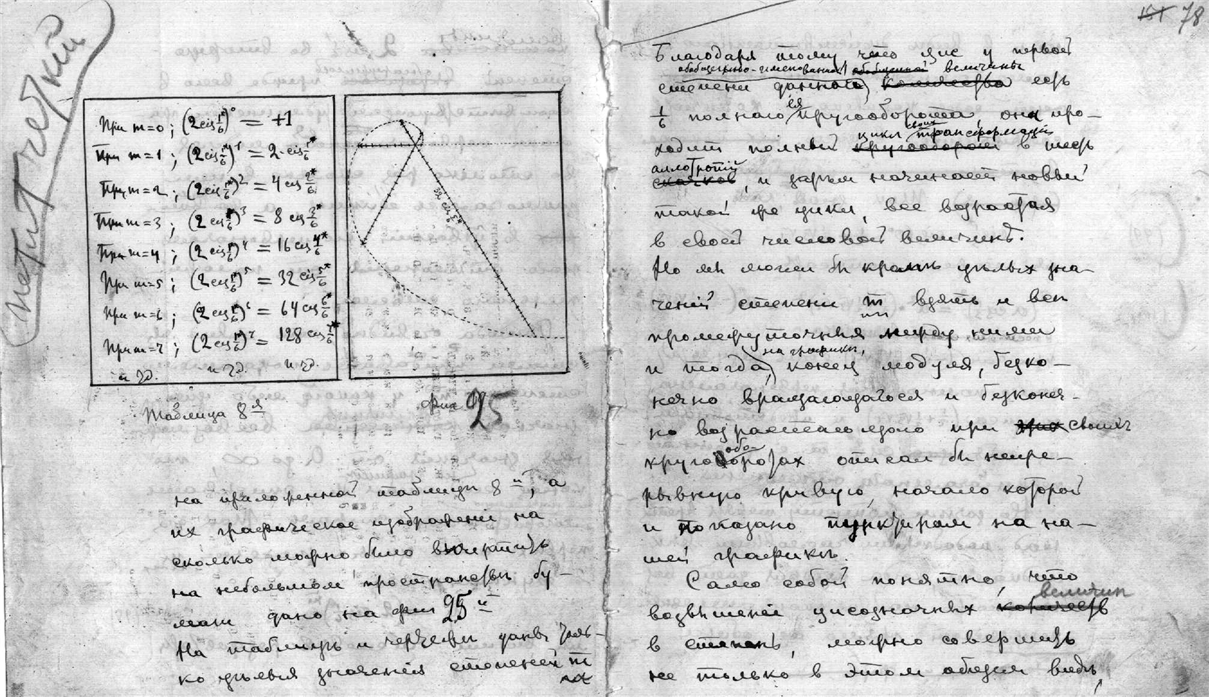 (петит четкий)
При m=0; (2cis 1*/6)^0 = +1
При m=1; (2cis 1*/6)^1 = 2·cis 1*/6
При m=2; (2cis 1*/6)^2 = 4 cis 2*/6
При m=3; (2cis 1*/6)^3 = 8 cis 3*/6
При m=4; (2cis 1*/6)^4 = 16 cis 4*/6
При m=5; (2cis 1*/6)^5 = 32 cis 5*/6
При m=6; (2cis 1*/6)^6 = 64 cis 6*/6
При m=7; (2cis 1*/6)^7 = 128 cis 7*/6
и т.д. и т.д. и т.д.
Таблица 8я
Фиг 25
на приложенной таблицѣ 8й, а
их графическое изображеніе на
сколько можно было вчертить
на небольшом пространствѣ бу-
маги дано на фиг 25й
На таблицѣ и чертежѣ даны толь-
ко цѣлыя значенія степеней m
78
Благодаря тому что цис у первой
обобщенно-именованной величины
степени данного количества лишь
1/6 полнаго кругооборота, она про-
цикл своих трансформацій
ходит полный кругооборот в шесть
аллотропій
скачков, и затѣм начинает новый
такой же цикл, все возрастая
в своей числовой величинѣ.
Но мы могли бы кромѣ цѣлых зна-
чений степени m взять и все
промежуточныя между ними
на графикѣ,
и тогда, конец модуля, безко-
нечно вращающагося и безконеч-
но возрастающаго при своих
кругооборотах описал бы непре-
рывную кривую, начало которой
и показано пунктиром на на-
шей графикѣ.
Само собой понятно, что
величин
возвышеніе цисозначных количеств
в степень, можно совершить
не только в этом общем видѣ,